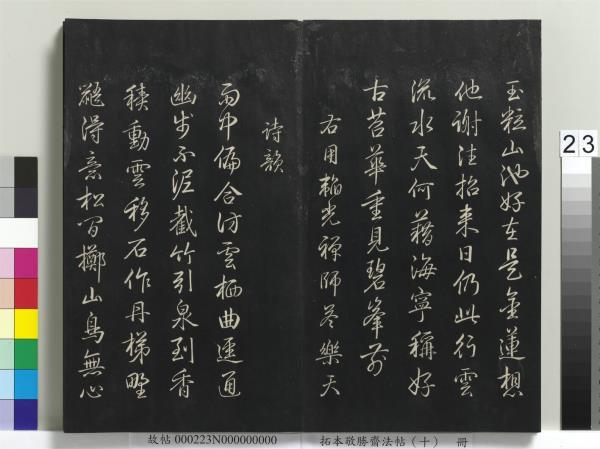 玉粒山池好在是金蓮想
他謝法招来日仍此行雲
流水天何藉海寧稱好
古苔華重見碧峯前
右用韜光禪師答樂天
詩韻
雨中偏合訪雲栖曲逕通
幽步不泥截竹引泉到香
積動雲移石作丹梯野
鼯得意松間擲山鳥無心
23
故帖 000223N000000000 拓本敬勝齋法帖（十） 冊